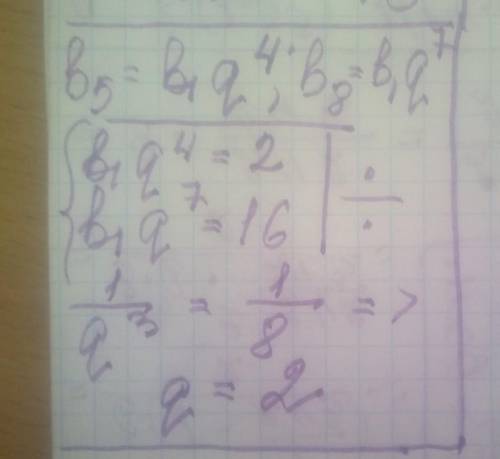 b₅ = b₁q⁴; b₈ = b₁q⁷
{ b₁q⁴ = 2 | ÷
b₁q⁷ = 16
1/q³ = 1/8 =>
q = 2